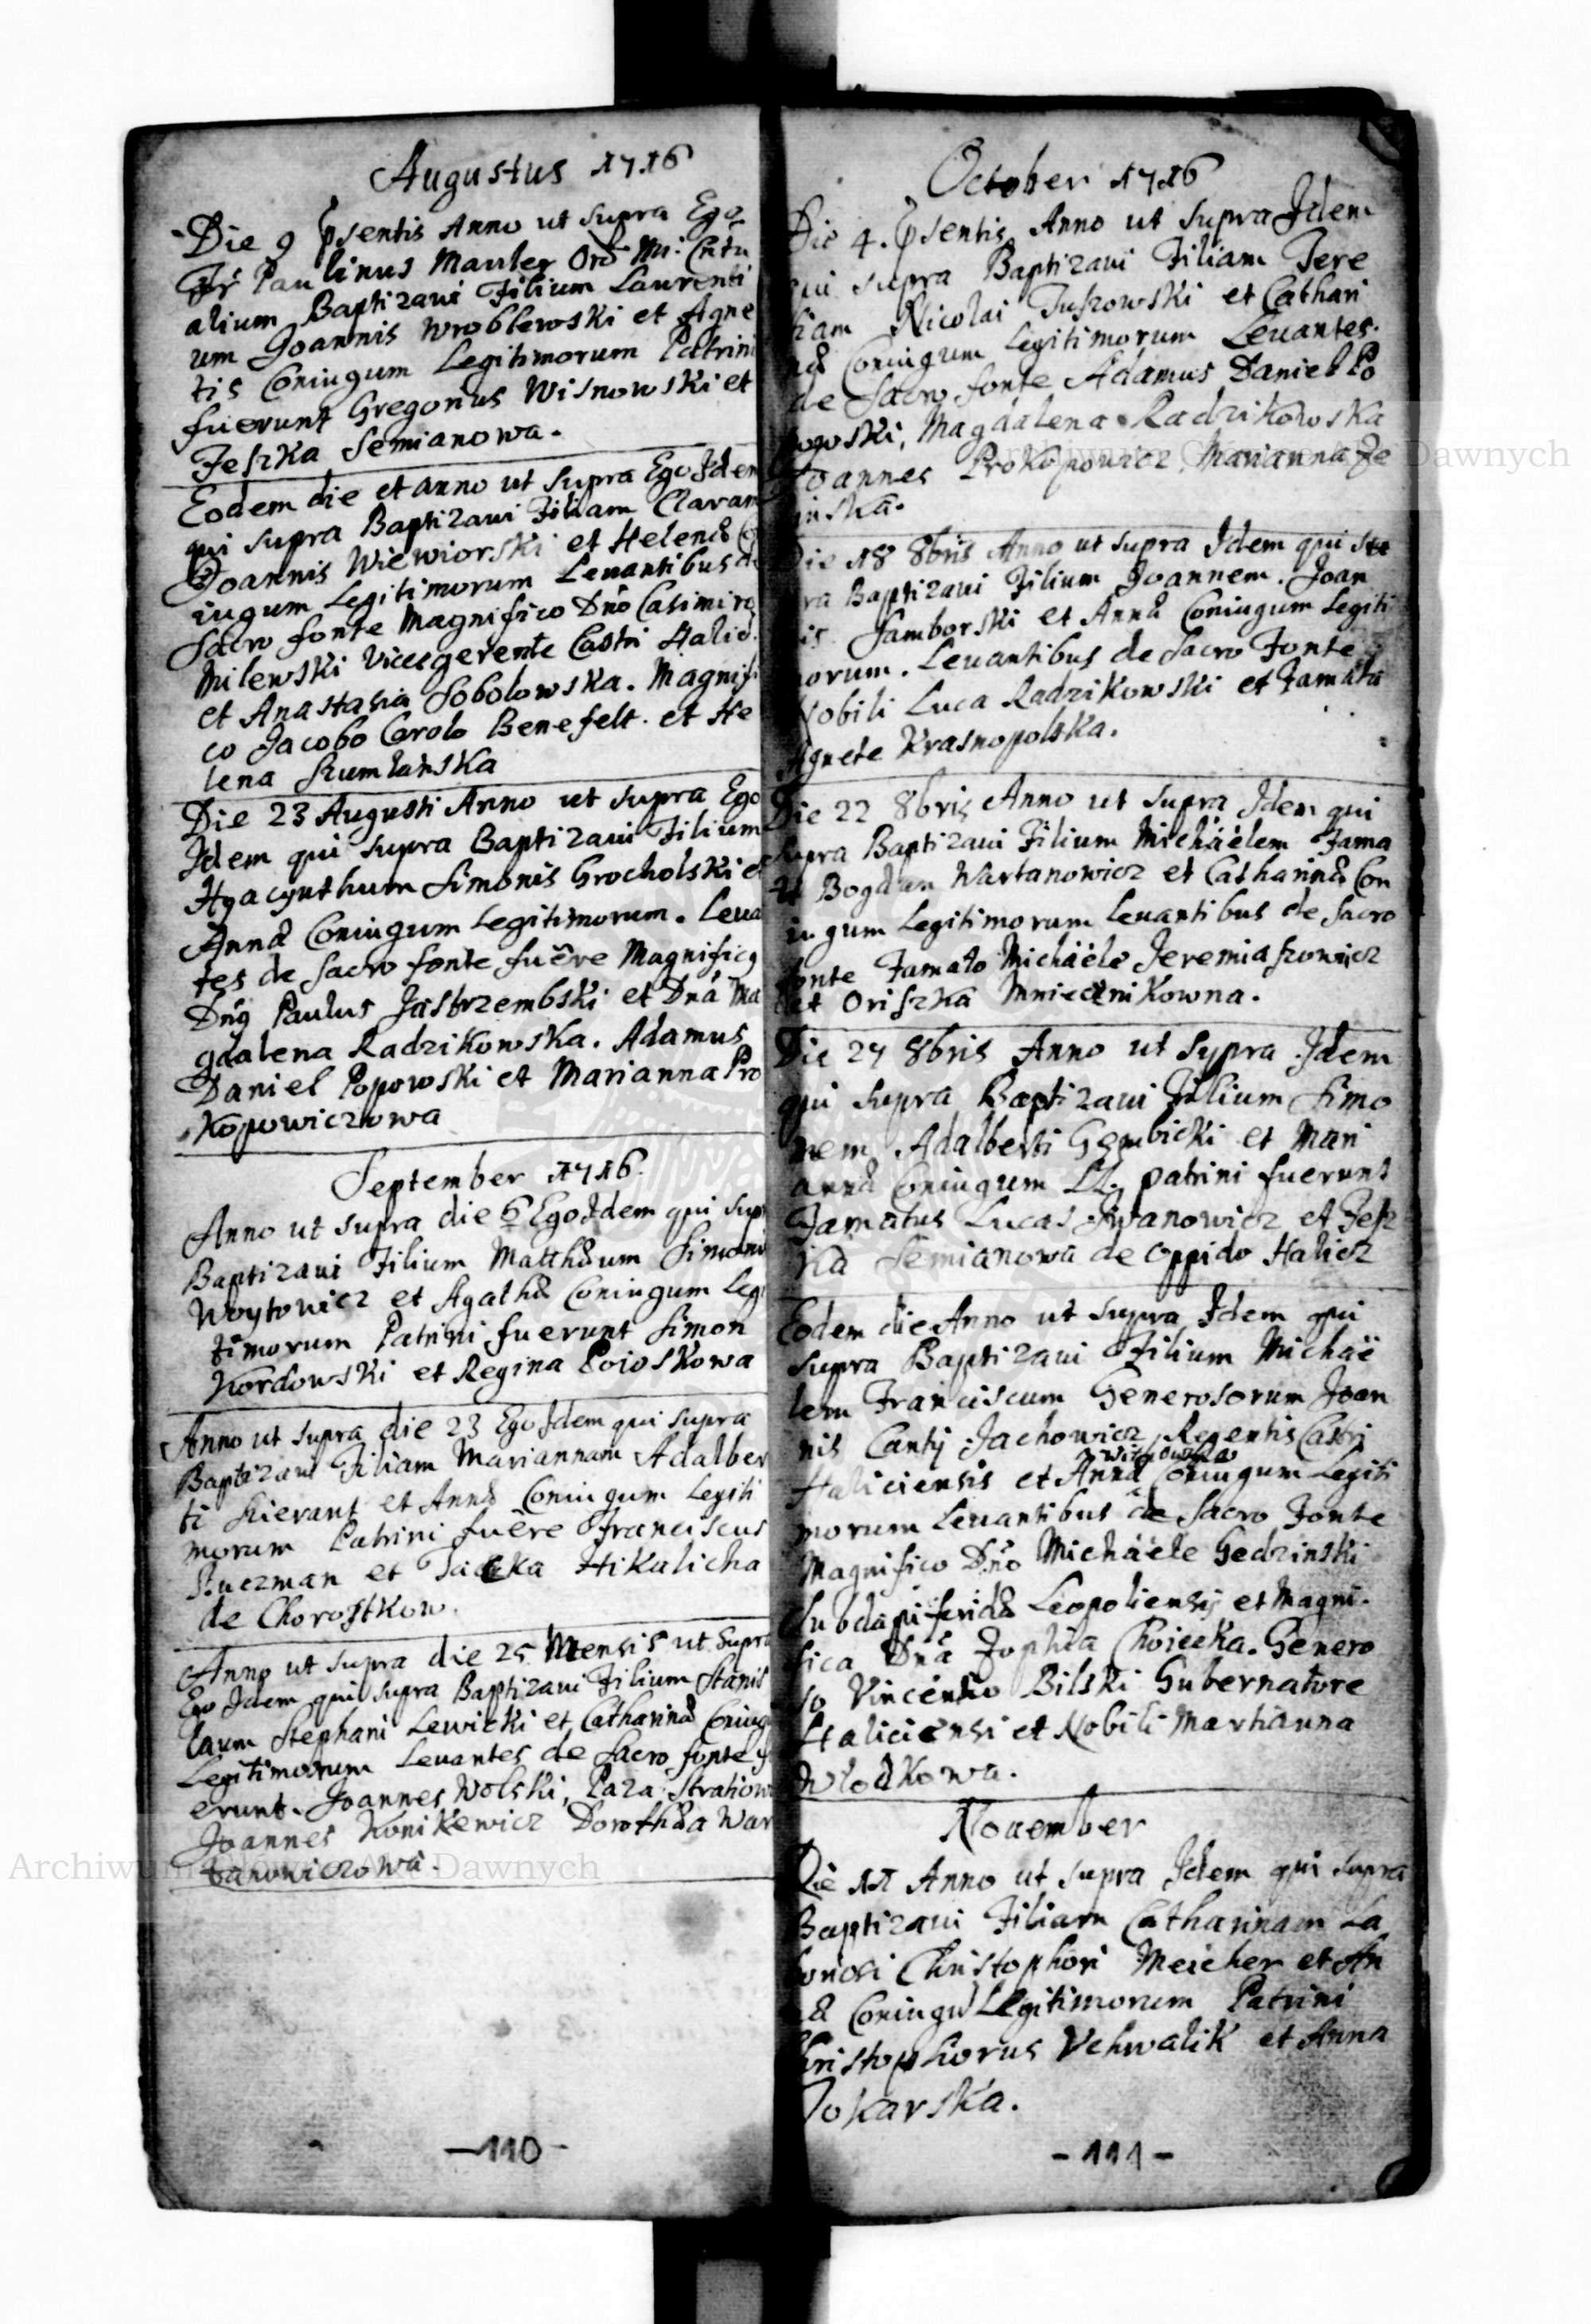 Augustus 1716
Die 9 Psentis Anno ut supra Ego
Fr Paulinus Mauler Ord Mi: Cntu
alium Baptizaui Filium Laurenti
um Joannis Wroblewski et Agne
tis Coniugum Legitimorum Patrini
fuerunt Gregorius Wisnowski et
Feszka Semianowa.
Eodem die et anno ut supra Ego Idem
qui supra Baptizaui Filiam Claram
Joannis Wiewiorski et Helenæ Co
iugum Legitimorum Leuantibus de
Sacro fonte Magnifico Dño Casimiro
Milewski Vicesgerente Castri Halic.
et Anastasia Sobolowska. Magnifi
co Jacobo Carolo Benefelt. et He
lena
Die 23 Augusti Anno ut supra Ego
Idem qui supra Baptizaui Filium
Hyacynthum Simonis Grocholski et
Annæ Coniugum Legitimorum. Leua
tes de Sacro fonte fuêre Magnificq
Dñq Paulus Jastrzembski et Dnâ Ma
gdalena Radzikowska. Adamus
Daniel Popowski et Marianna Pro
kopowiczowa
September 1716.
Anno ut supra die 6 Ego Idem qui sup
Baptizaui Filium Matthæum Simoni
Woytowicz et Agathæ Coniugum Legi
timorum Patrini fuerunt Simon
Kordowski et Regina Poioskowa
Anno ut supra die 23 Ego Idem qui supra
Baptizaui Filiam Mariannam Adalber
ti Kierant et Annæ Coniugum Legiti
morum Patrini fuêre Franciscus
Kuczman et Hikalicha
de Chorostkow.
Anno ut supra die 25 Mensis ut supra
Ego Idem qui supra Baptizaui Filium Stanis
laum Stephani Lewicki et Catharinæ Coniug
Legitimorum Leuantes de Sacro fonte f
erunt. Joannes Wolski, Para Stratiow
Joannes Konikewicz Dorothæa War
tanowiczowa.
-110-
October 1716
Die 4. Psentis Anno ut supra Idem
qui supra Baptizaui Filiam Tere
siam Nicolai Juszowski et Cathari
næ Coniugum Legitimorum Leuantes.
de Sacro fonte Adamus Daniel Po
powski, Magdalena Radzikowska
Joannes Prokopowicz, Marianna Ze
inska.
Die 18 8bris Anno ut supra Idem qui su
pra Baptizaui Filium Joannem. Joan
is Samborski et Annæ Coniugum Legiti
morum. Leuantibus de Sacro Fonte
Nobili Luca Radzikowski et Famata
Agnete Krasnopolska.
Die 22 8bris Anno ut supra Idem qui
supra Baptizaui Filium Michäelem Fama
ti Bogdan Wartanowicz et Catharinæ Con
iugum Legitimorum Leuantibus de Sacro
fonte Famato Michäele Jeremiaszowicz
et Oriszka Mniednikowna.
Die 24 8bris Anno ut supra Idem
qui supra Baptizaui Filium Simo
nem Adalberti Gembicki et Mari
annæ Coniugum LL. patrini fuerunt
Famatus Lucas Iwanowicz et Fesz
ka Semianowa de Oppido Halicz
Eodem die Anno ut supra Idem qui
supra Baptizaui Filium Michaë
lem Franciscum Generosorum Joan
nis Cantij Jachowicz Regentis Castri
Haliciensis et Annæ Coniugum Legiti
morum Leuantibus de Sacro Fonte
Magnifico Dño Michäele Gedzinski
Subdapiferidæ Leopoliensis et Magni.
fica Dnâ Zophia Choiecka. Genero
so Vincentio Bilski Gubernatore
Haliciensi et Nobili Martianna
Wlodkowa.
Nouember
Die 11 Anno ut supra Idem qui supra
Baptizaui Filiam Catharinam La
boriosi Christophori Meicher et An
næ Coniugū Legitimorum Patrini
Christophorus Vchwalik et Anna
Tokarska.
-111-
Archiwum Główne Akt Dawnych
Archiwum Główne Akt Dawnych